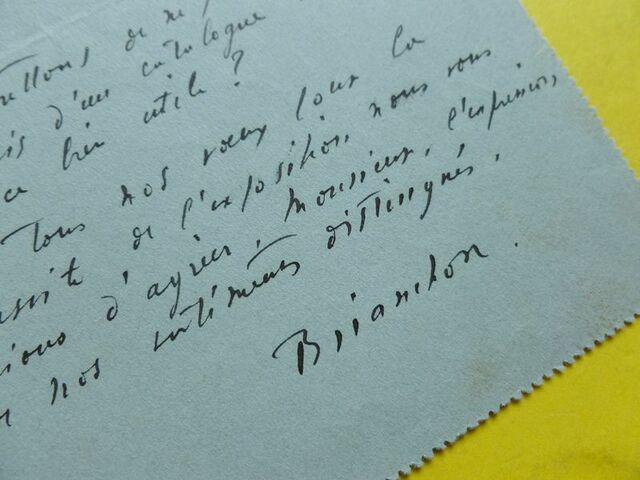 de
d'un catalogue
bien utile ?
Tous nos vœux pour la
de l'exposition nous vous
d'agréer, Monsieur, l'expression
nos sentiments distingués.
Brianchon.